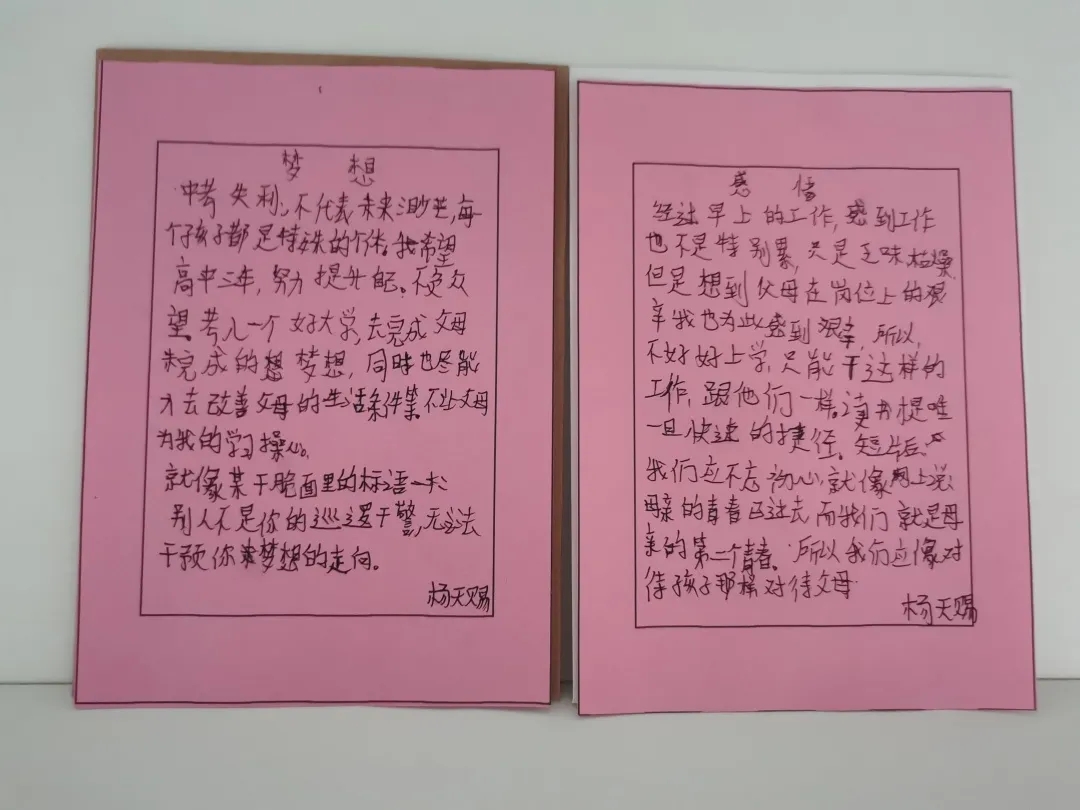 梦 想
中考失利,不代表未来渺茫,每
个孩子都是特殊的个体。我希望
高中三年,努力提升自己。不负众
望考入一个好大学,去完成父母
未完成的想梦想,同时也尽能
力去改善父母的生活条件等。不让父母
为我的学习操心。
就像某干脆面里的标语一求:
别人不是你的巡逻干警,无法
干预你梦想的走向。
杨天赐
感 悟
经过早上的工作,感到工作
也不是特别累,只是乏味枯燥
但是想到父母在岗位上的艰
辛我也为此感到艰辛,所以,
不好好上学,只能干这样的
工作,跟他们一样。读书是唯
一且快速的捷径。
我们应不忘初心,就像网上说
母亲的青春已过去而我们就是母
亲的第二个青春。所以我们应像对
待孩子那样对待父母
杨天赐